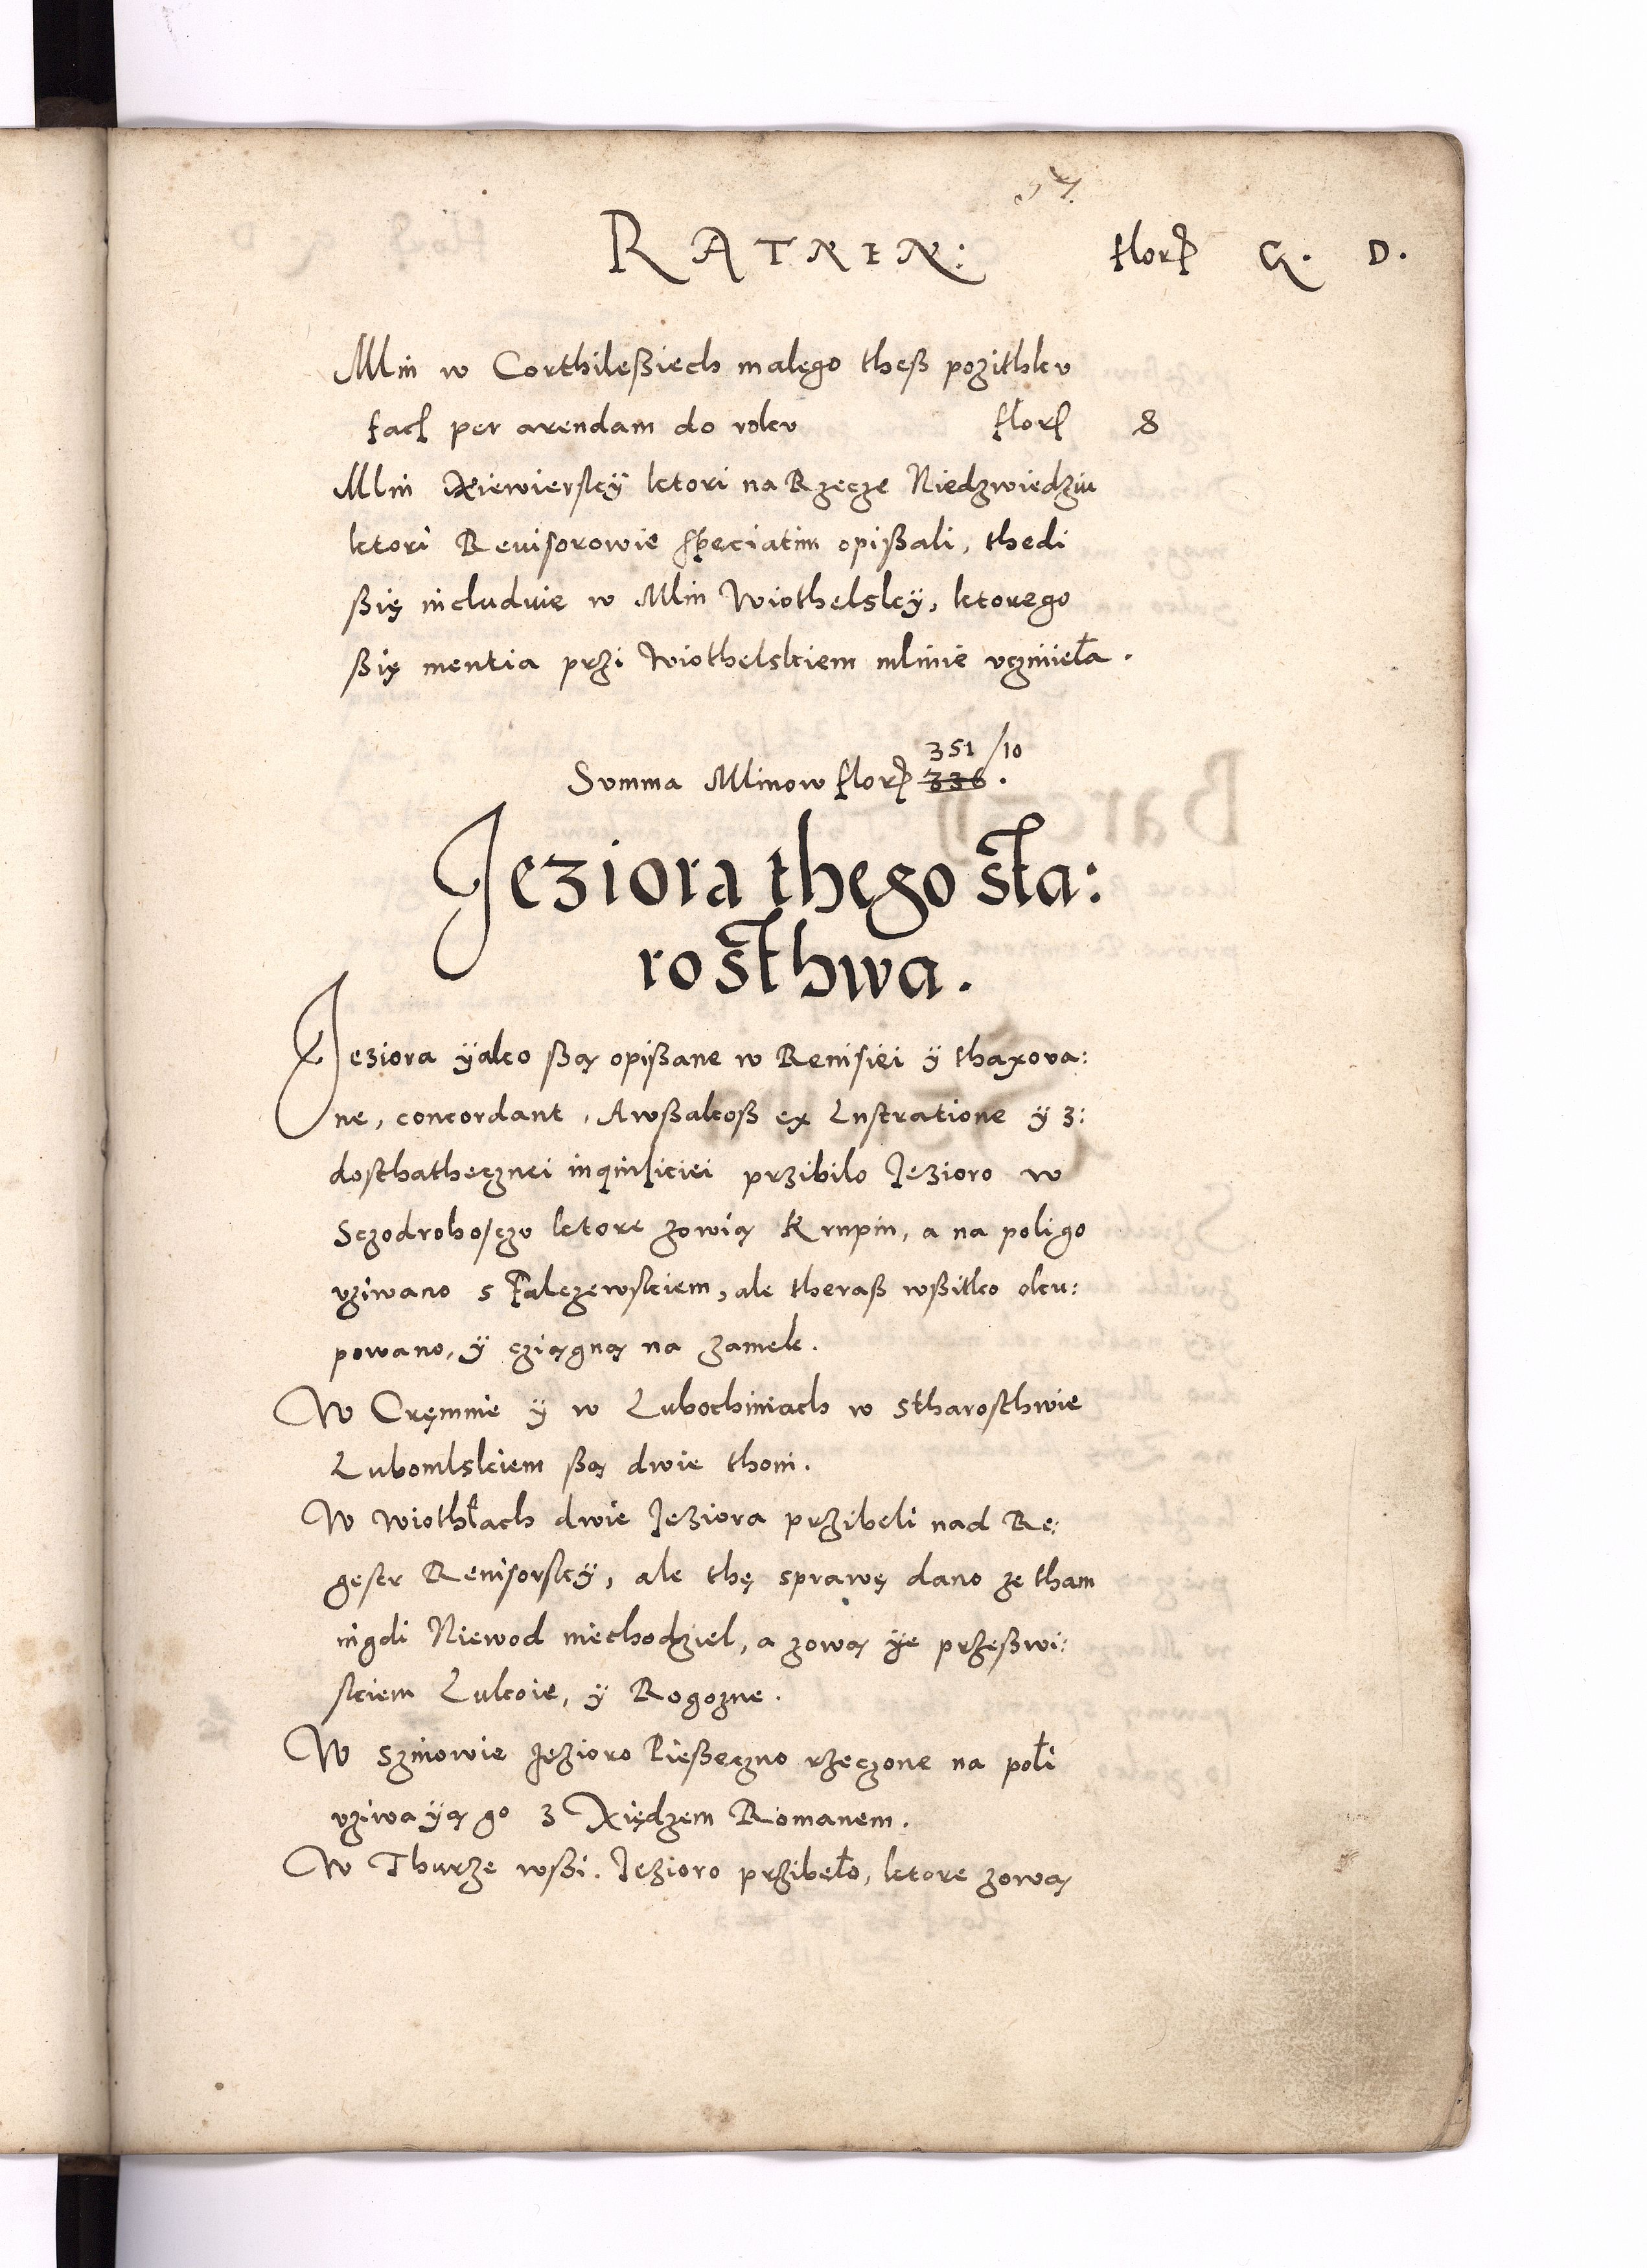 57.
RATNEN: flor G. D.
Mlin w Corthileßiech malego theß pozithku
facit per arendam do roku flor 8
Mlin Xiewierskÿ ktori na Rzecze Niedzwiedziu
ktori Revisorowie speciatim opißali, thedi
ßię includuie w Mlin Wiothelskÿ, ktorego
ßię mentia przi Wiothelskiem mlinie vczinieła.
351/10
Summa Mlinow flor 336.
Jeziora thego sta:
rosthwa.
Jeziora ÿako ßą opißane w Revisiei ÿ thaxova:
ne, concordant, Awßakoß ex Lustratione ÿ z:
dosthathecznei inquisiciei przibilo Jezioro w
Sczodrohosczo ktore zowią Krupin, a na poli go
vziwano s Falczewskiem, ale theraß wßitko oku:
powano, ÿ cziągną na zamek.
W Cręmnie ÿ w Lubochiniach w stharosthwie
Lubomlskiem ßą dwie thoni.
W Wiothłach dwie Jeziora przibeli nad Re:
gestr Revisorskÿ, ale thę sprawę dano ze tham
nigdi Niewod niechodziel, a zową ÿe przeßwi:
skiem Lukoie, ÿ Rogozne.
W Szinowie Jezioro Pießeczno rzeczone na poli
vziwaÿą go z Xiędzem Romanem.
W Thurze wßi. Jezioro przibeło, ktore zową